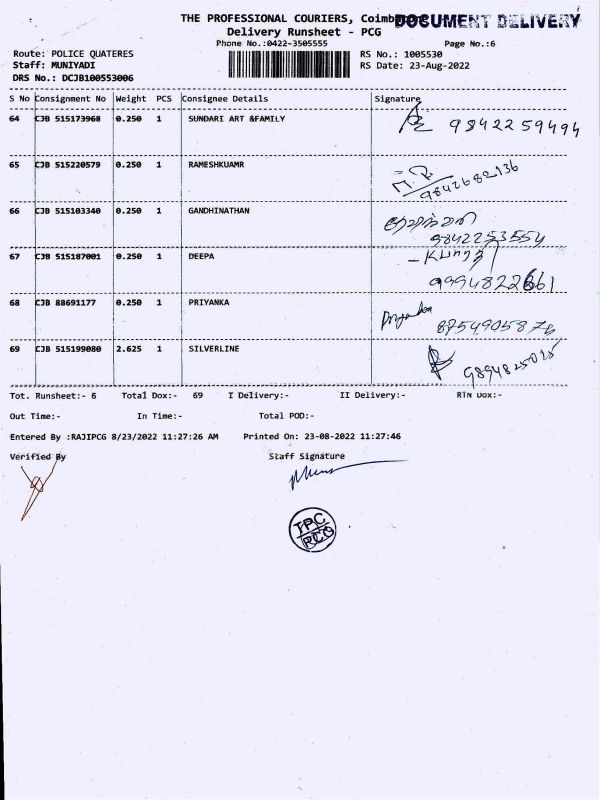 THE PROFESSIONAL COURIERS, Coimb
DOCUMENT DELIVERY
Delivery Runsheet - PCG
Phone No.:0422-3505555
Page No.:6
Route: POLICE QUATERES
RS No.: 1005530
Staff: MUNIYADI
RS Date: 23-Aug-2022
DRS No.: DCJB100553006
S No Consignment No Weight PCS Consignee Details Signature
64 CJB 515173968 0.250 1 SUNDARI ART &FAMILY 9842259494
65 CJB 515220579 0.250 1 RAMESHKUAMR 9842682136
66 CJB 515103340 0.250 1 GANDHINATHAN
9842253554
67 CJB 515187001 0.250 1 DEEPA
9994822661
68 CJB 88691177 0.250 1 PRIYANKA Priyanka
8754990587
69 CJB 515199080 2.625 1 SILVERLINE 9894825015
Tot. Runsheet:- 6 Total Dox:- 69 I Delivery:- II Delivery:- RTN Dox:-
Out Time:- In Time:- Total POD:-
Entered By :RAJIPCG 8/23/2022 11:27:26 AM Printed On: 23-08-2022 11:27:46
Verified By Staff Signature
TPC
PCG